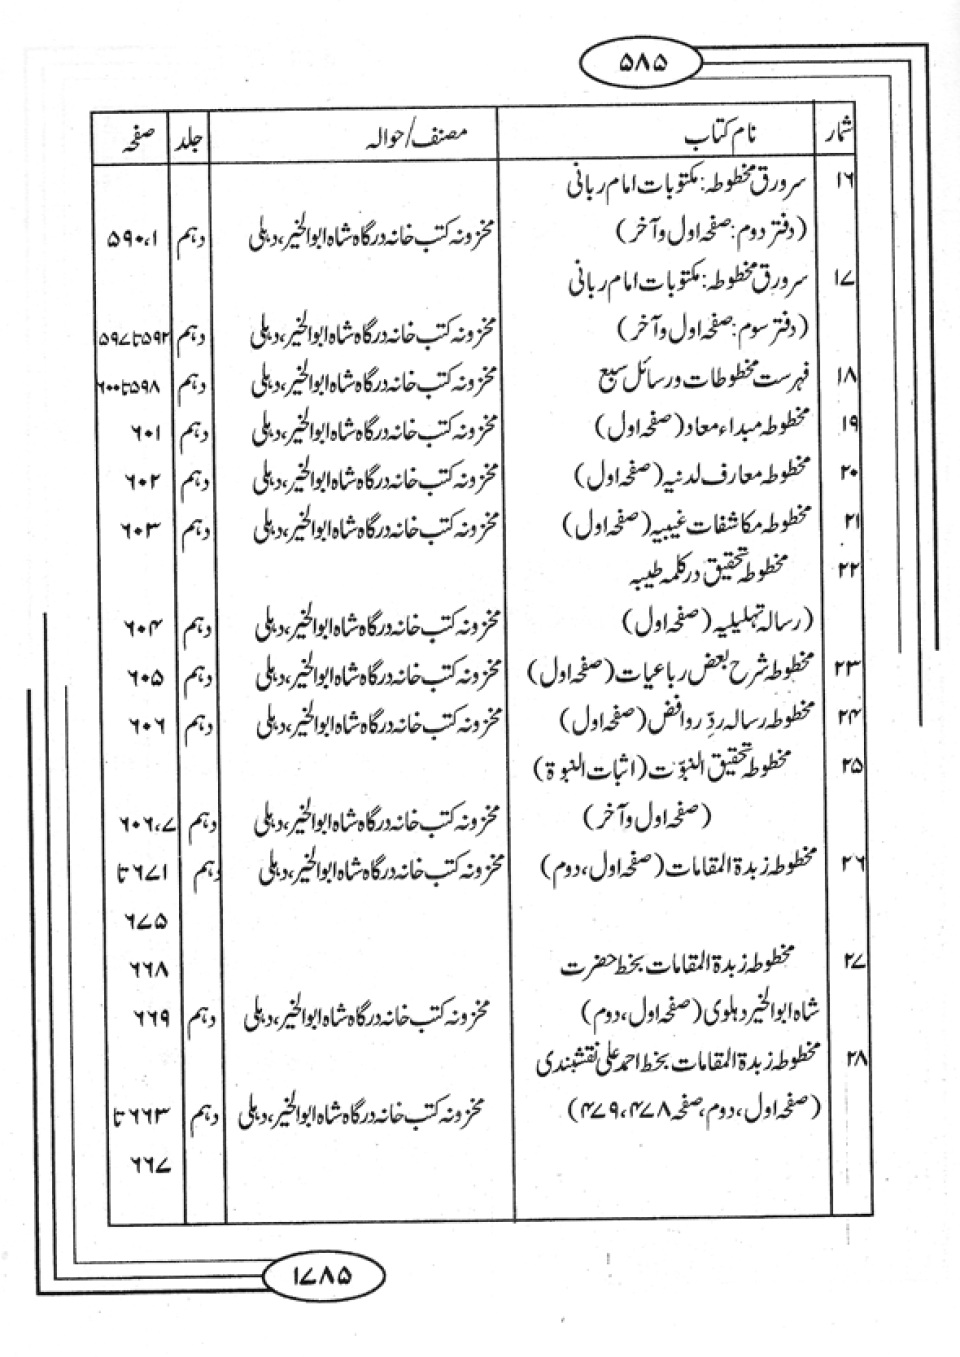 ۵۸۵
شمار نام کتاب مصنف/حوالہ جلد صفحہ
۱۶ سرورق مخطوطہ: مکتوبات امام ربانی
(دفتر دوم: صفحہ اول و آخر) مخزونہ کتب خانہ درگاہ شاہ ابوالخیر، دہلی دہم ۵۹۰،۱
۱۷ سرورق مخطوطہ: مکتوبات امام ربانی
(دفتر سوم: صفحہ اول و آخر) مخزونہ کتب خانہ درگاہ شاہ ابوالخیر، دہلی دہم ۵۹۲ تا ۵۹۷
۱۸ فہرست مخطوطات و رسائل سبع مخزونہ کتب خانہ درگاہ شاہ ابوالخیر، دہلی دہم ۵۹۸ تا ۶۰۰
۱۹ مخطوطہ مبداء معاد (صفحہ اول) مخزونہ کتب خانہ درگاہ شاہ ابوالخیر، دہلی دہم ۶۰۱
۲۰ مخطوطہ معارف لدنیہ (صفحہ اول) مخزونہ کتب خانہ درگاہ شاہ ابوالخیر، دہلی دہم ۶۰۲
۲۱ مخطوطہ مکاشفات غیبیہ (صفحہ اول) مخزونہ کتب خانہ درگاہ شاہ ابوالخیر، دہلی دہم ۶۰۳
۲۲ مخطوطہ تحقیق در کلمہ طیبہ
(رسالہ تہلیلیہ (صفحہ اول) مخزونہ کتب خانہ درگاہ شاہ ابوالخیر، دہلی دہم ۶۰۴
۲۳ مخطوطہ شرح بعض رباعیات (صفحہ اول) مخزونہ کتب خانہ درگاہ شاہ ابوالخیر، دہلی دہم ۶۰۵
۲۴ مخطوطہ رسالہ ردِّ روافض (صفحہ اول) مخزونہ کتب خانہ درگاہ شاہ ابوالخیر، دہلی دہم ۶۰۶
۲۵ مخطوطہ تحقیق النبوّت (اثبات النبوۃ)
(صفحہ اول و آخر) مخزونہ کتب خانہ درگاہ شاہ ابوالخیر، دہلی دہم ۶۰۶،۷
۲۶ مخطوطہ زبدۃ المقامات (صفحہ اول، دوم) مخزونہ کتب خانہ درگاہ شاہ ابوالخیر، دہلی دہم ۶۷۱ تا
۶۷۵
۲۷ مخطوطہ زبدۃ المقامات بخط حضرت ۶۶۸
شاہ ابوالخیر دہلوی (صفحہ اول، دوم) مخزونہ کتب خانہ درگاہ شاہ ابوالخیر، دہلی دہم ۶۶۹
۲۸ مخطوطہ زبدۃ المقامات بخط احمد علی نقشبندی
(صفحہ اول، دوم، صفحہ ۴۷۸، ۴۷۹) مخزونہ کتب خانہ درگاہ شاہ ابوالخیر، دہلی دہم ۶۶۳ تا
۶۶۷
۱۷۸۵